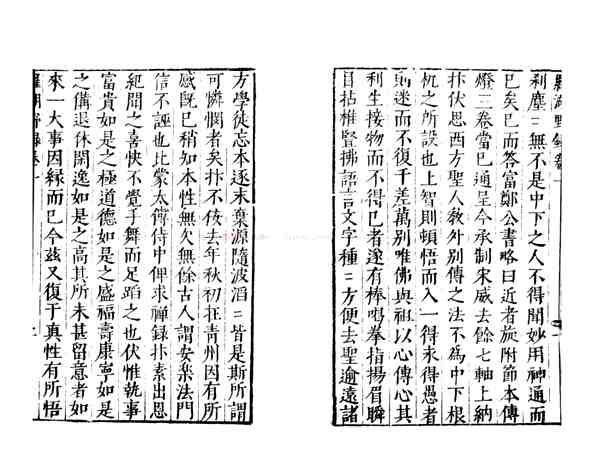 羅湖野錄卷一
剎塵〻無不是中下之人不得聞妙用神通而
已矣已而答富鄭公書略曰近者旋附節本傳
燈三卷當已通呈今承制宋威去餘七軸上納
抃伏思西方聖人教外別傳之法不為中下根
机之所設也上智則頓悟而入一得永得愚者
則迷而不復千差萬別唯佛與祖以心傳心其
利生接物而不得已者遂有棒喝拳指揚眉瞬
目拈椎竪拂語言文字種〻方便去聖逾遠諸
方學徒忘本逐末棄源隨波滔〻皆是斯所謂
可憐憫者矣抃不佞去年秋初在青州因有所
感既已稍知本性無欠無餘古人謂安樂法門
信不誣也比蒙太傅侍中俾求禪録抃素出恩
紀聞之喜快不覺手舞而足蹈之也伏惟執事
富貴如是之極道德如是之盛福壽康寧如是
之備退休閑逸如是之高其所未甚留意者如
來一大事因緣而已今茲又復于真性有所悟
羅湖野錄卷一